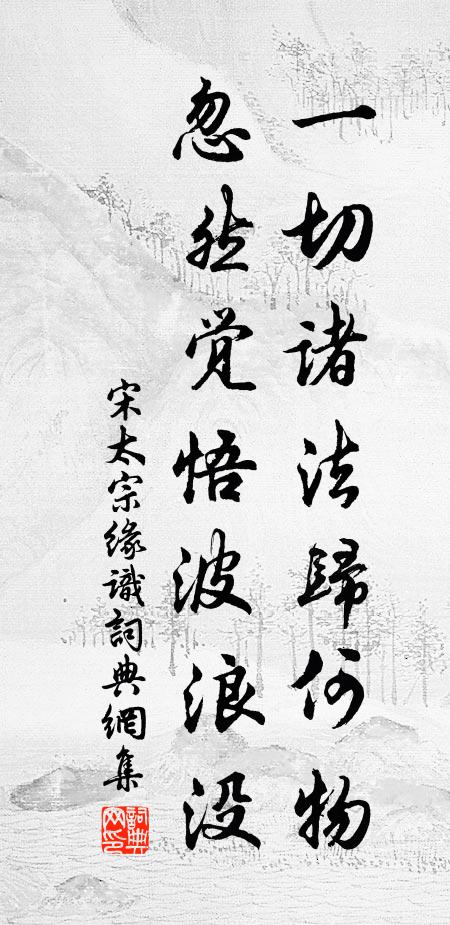 一切诸法歸何物
忽然觉悟波浪没
宋太宗缘識詞典網集
詞典網印